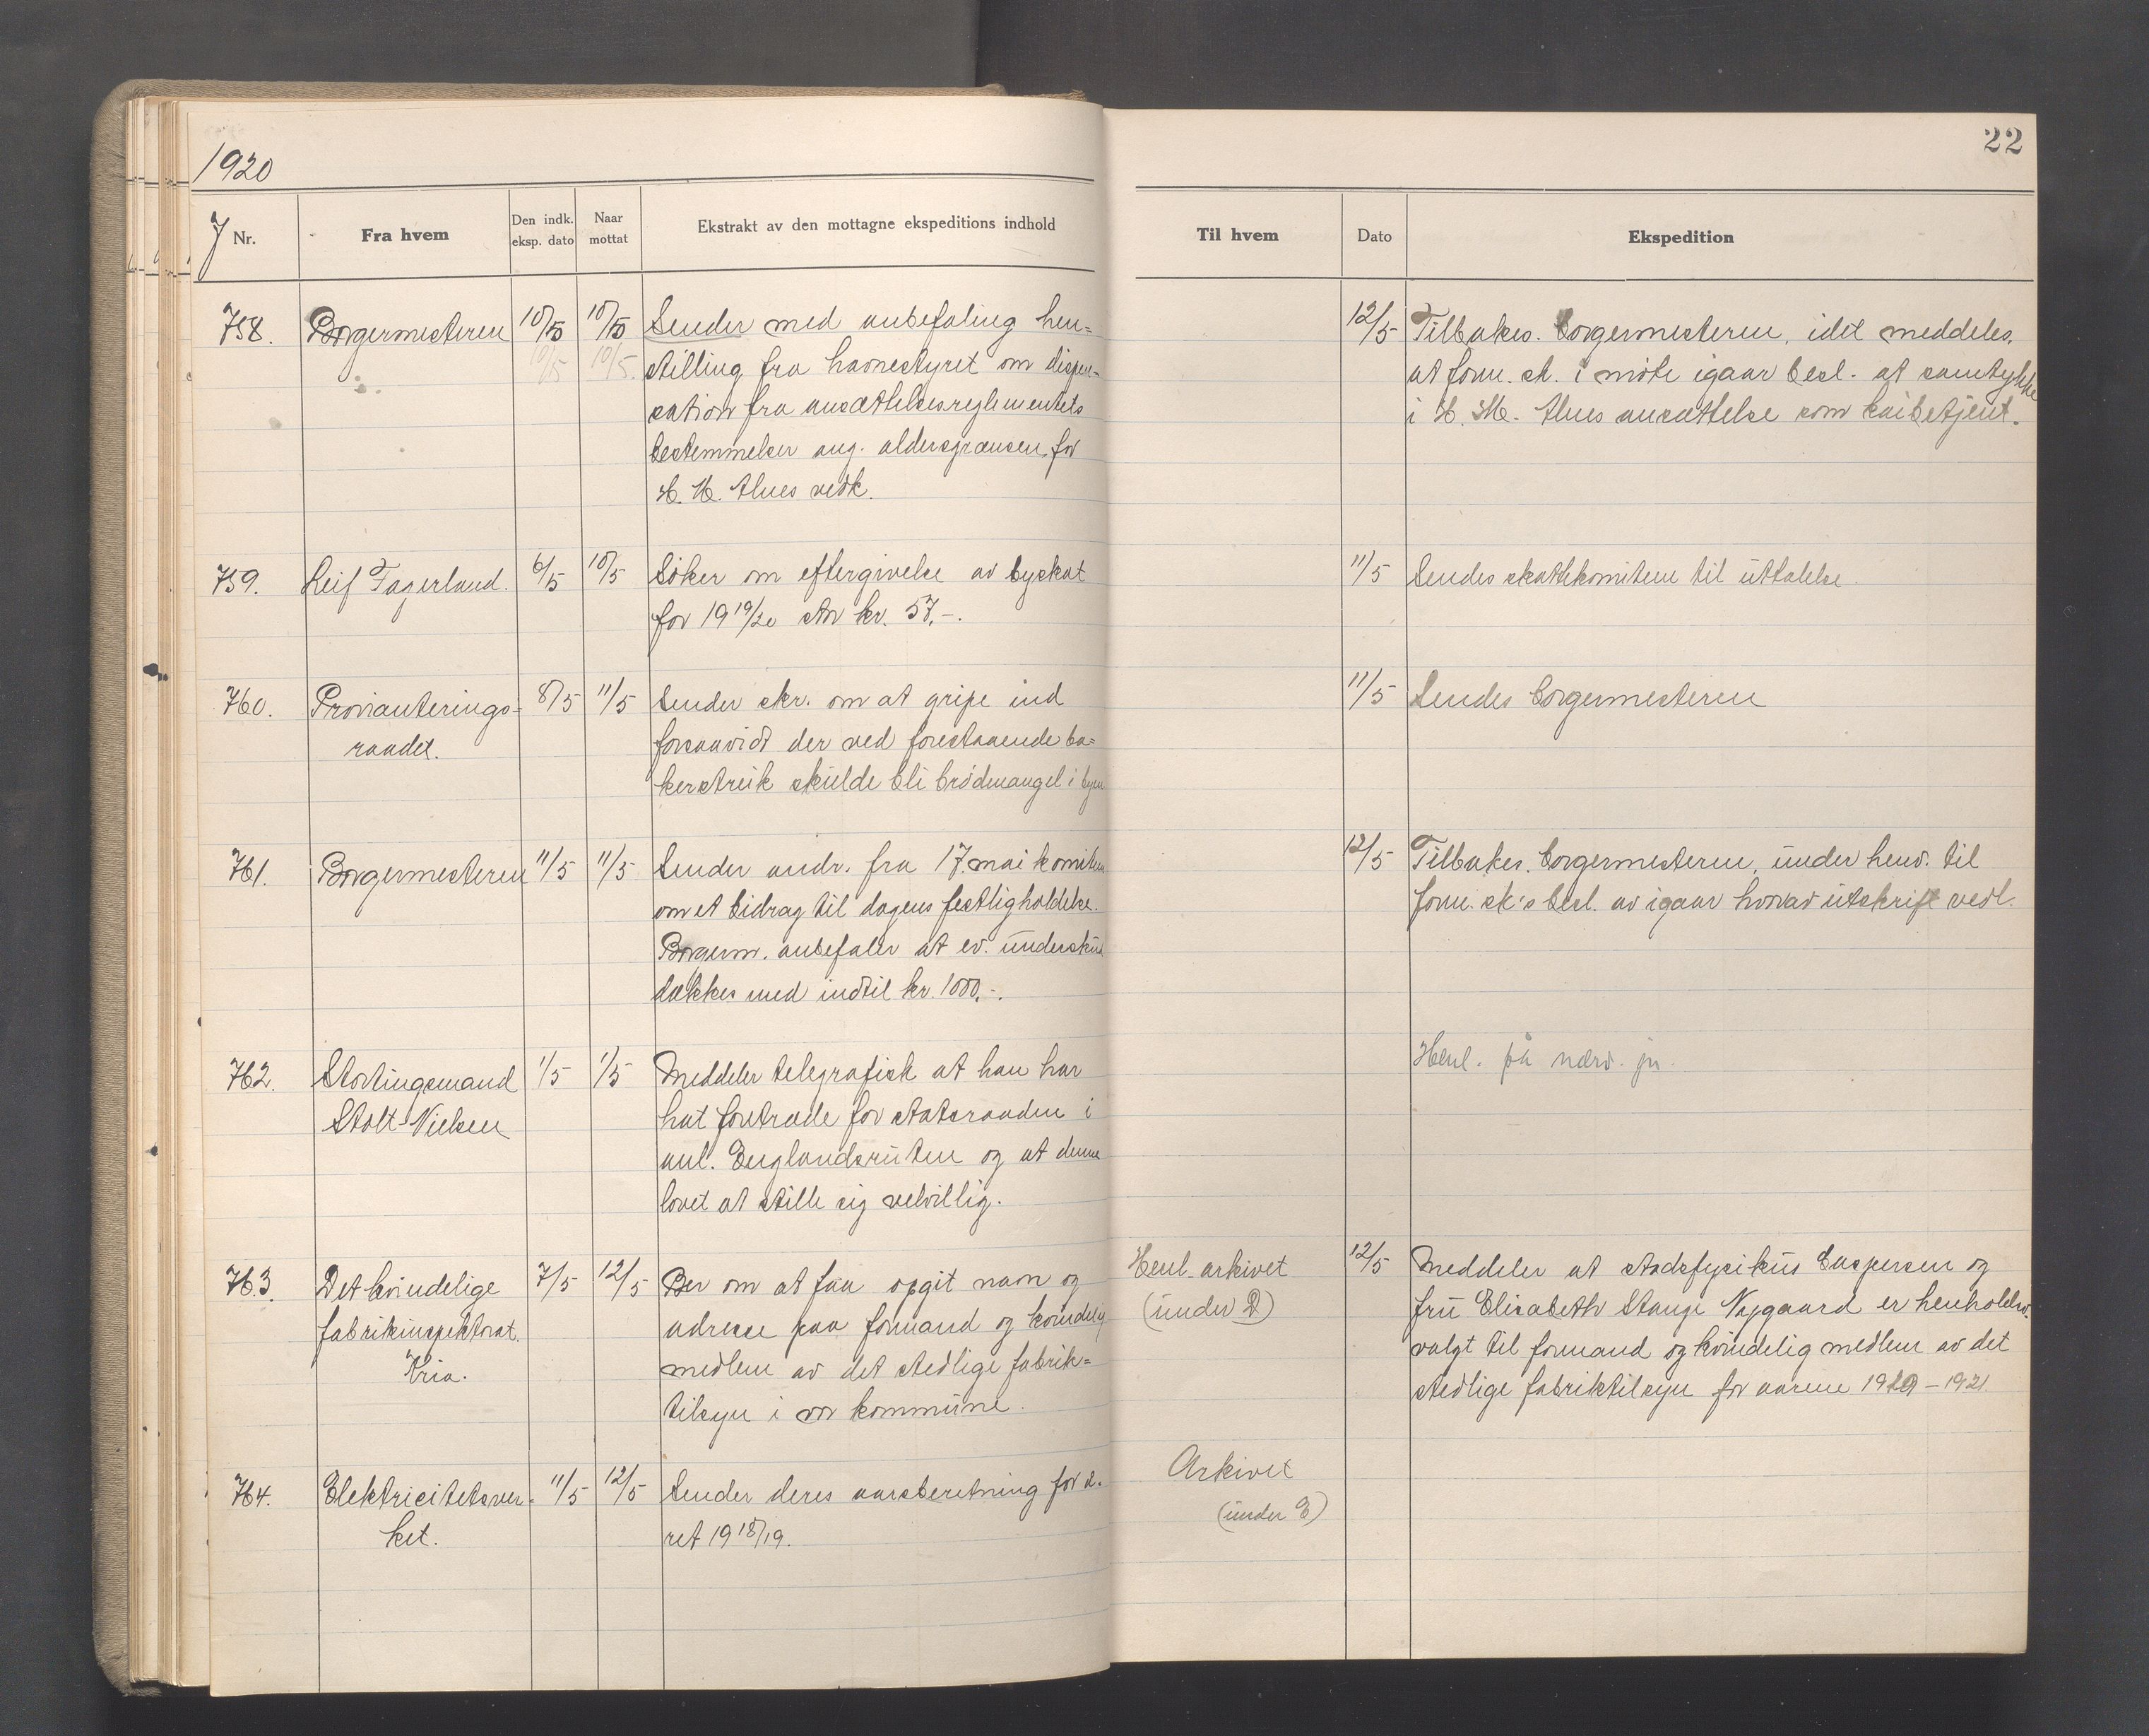 1920
22
J Nr.
Fra hvem
Den indk. eksp. dato
Naar mottat
Ekstrakt av den mottagne ekspeditions indhold
Til hvem
Dato
Ekspedition
758.
Borgermesteren
10/5
10/5
10/5
10/5.
Sender med anbefaling hen=
stilling fra havnestyret om dispen-
sation fra ansættelsesreglementets
bestemmelser ang. aldersgrænsen for
H. M. Alnes vedk.
12/5
Tilbakes. borgermesteren, idet meddeles,
at form. sk. i møte igaar besl. at samtykke
i H. M. Alnes ansættelse som kaibetjent.
759.
Leif Fagerland.
6/5
10/5
Søker om eftergivelse av byskat
for 1919/20 stor kr. 57.-.
11/5
Sendes skattekomiteen til uttalelse
760.
Provianterings-
raadet.
8/5
11/5
Sender skr. om at gripe ind
forsaavidt der ved forestaaende ba=
kerstreik skulde bli brødmangel i byen
11/5
Sendes borgermesteren
761.
Borgermesteren
11/5
11/5
Sender andr. fra 17. mai komiteen
om et bidrag til dagens festligholdelse.
Borgerm. anbefaler at ev. undersku
dækkes med indtil kr. 1000.-.
12/5
Tilbakes. borgermesteren, under henv. til
form. sk's besl. av igaar hvorav utskrift vedl.
762.
Stortingsmand
Stolt-Nielsen
1/5
1/5
Meddeler telegrafisk at han har
hat foretræde for statsraaden i
anl. Englandsruten og at denne
lovet at stille sig velvillig.
Henl. på nærv. jn.
763.
Det kvindelige
fabrikinspektorat.
Kria.
7/5
12/5
Ber om at faa opgit navn og
adresse paa formand og kvindelig
medlem av det stedlige fabrik=
tilsyn i vor kommune.
Henl. arkivet
(under D)
12/5
Meddeler at stadsfysikus Caspersen og
fru Elisabeth Stange Nygaard er henholdsv.
valgt til formand og kvindelig medlem av det
stedlige fabriktilsyn for aarene 1919-1921
764.
Elektricitetsver-
ket.
11/5
12/5
Sender deres aarsberetning for a-
ret 1918/19.
Arkivet
(under E)